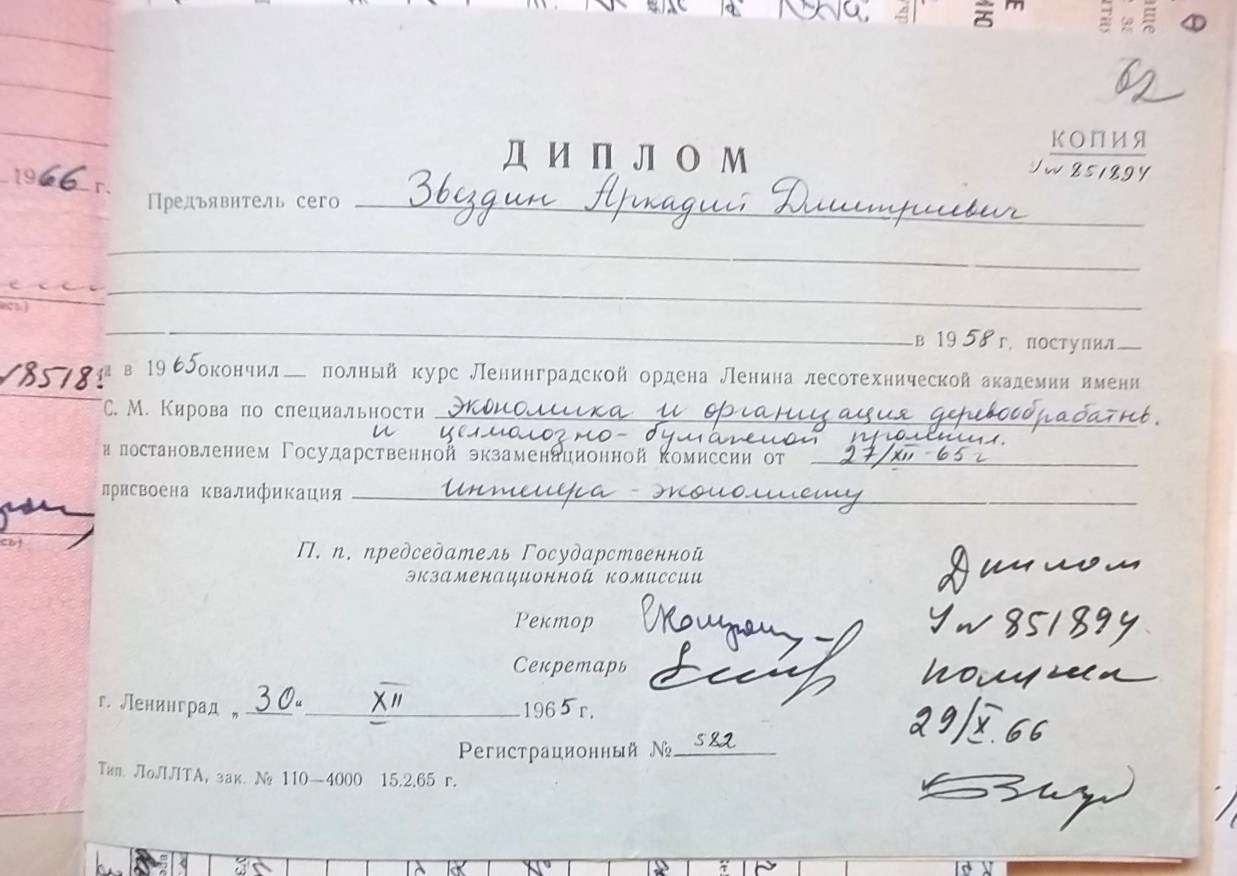 62
КОПИЯ
У№ 851894
ДИПЛОМ
Предъявитель сего Звездин Аркадий Дмитриевич
в 1958 г. поступил
и в 1965 окончил полный курс Ленинградской ордена Ленина лесотехнической академии имени
С. М. Кирова по специальности экономика и организация деревообрабатыв.
и целлюлозно-бумажной промышл.
и постановлением Государственной экзаменационной комиссии от 27/XII-65 г
присвоена квалификация инженера-экономиста
П. п. председатель Государственной
экзаменационной комиссии
Ректор
Секретарь
г. Ленинград „30“ XII 1965 г.
Регистрационный № 582
Тип. ЛоЛЛТА, зак. № 110—4000 15.2.65 г.
Диплом
У№ 851894
получил
29/X.66
1966 г.